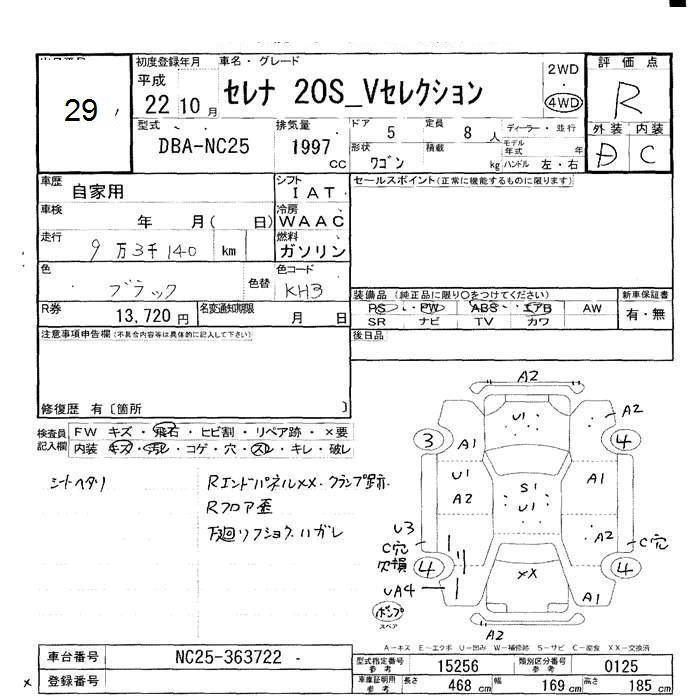 初度登録年月
車名・グレード
評価点
29
平成
22 10月
セレナ 20S_Vセレクション
2WD
4WD
R
型式
DBA-NC25
排気量
1997 CC
ドア 5
定員 8人
ディーラー・並行
形状 ワゴン
積載 kg
モデル年式 年
ハンドル 左・右
外装 内装
D C
車歴 自家用
シフト IAT
セールスポイント(正常に機能するものに限ります)
車検 年 月( 日)
冷房 WAAC
走行 9万3千140 km
燃料 ガソリン
色 ブラック
色替
色コード KH3
装備品 (純正品に限り○をつけてください)
新車保証書
PS ・ PW ・ ABS ・ エアB AW
有・無
SR ナビ TV カワ
R券 13,720円
名変通知期限 月 日
後日品
注意事項申告欄(不具合内容等は具体的に記入して下さい)
修復歴 有〔箇所 〕
検査員記入欄
FW キズ・飛石・ヒビ割・リペア跡・×要
内装 キズ・汚レ・コゲ・穴・スレ・キレ・破レ
シートヘタリ
RエンドパネルXX・クランプ跡
Rフロア歪
下廻リフショク、ハガレ
A2
U1
A2
3
A1
4
U1
A2
S1
U1
A1
U3
C穴
欠損
A2
C穴
4
XX
4
UA4
A1
ポンプ
スペア
A2
A-キズ E-エクボ U-凹み W-補修跡 S-サビ C-腐食 XX-交換済
車台番号 NC25-363722
型式指定番号 参考 15256
類別区分番号 参考 0125
x 登録番号
車庫証明用 参考
長さ 468 cm
幅 169 cm
高さ 185 cm